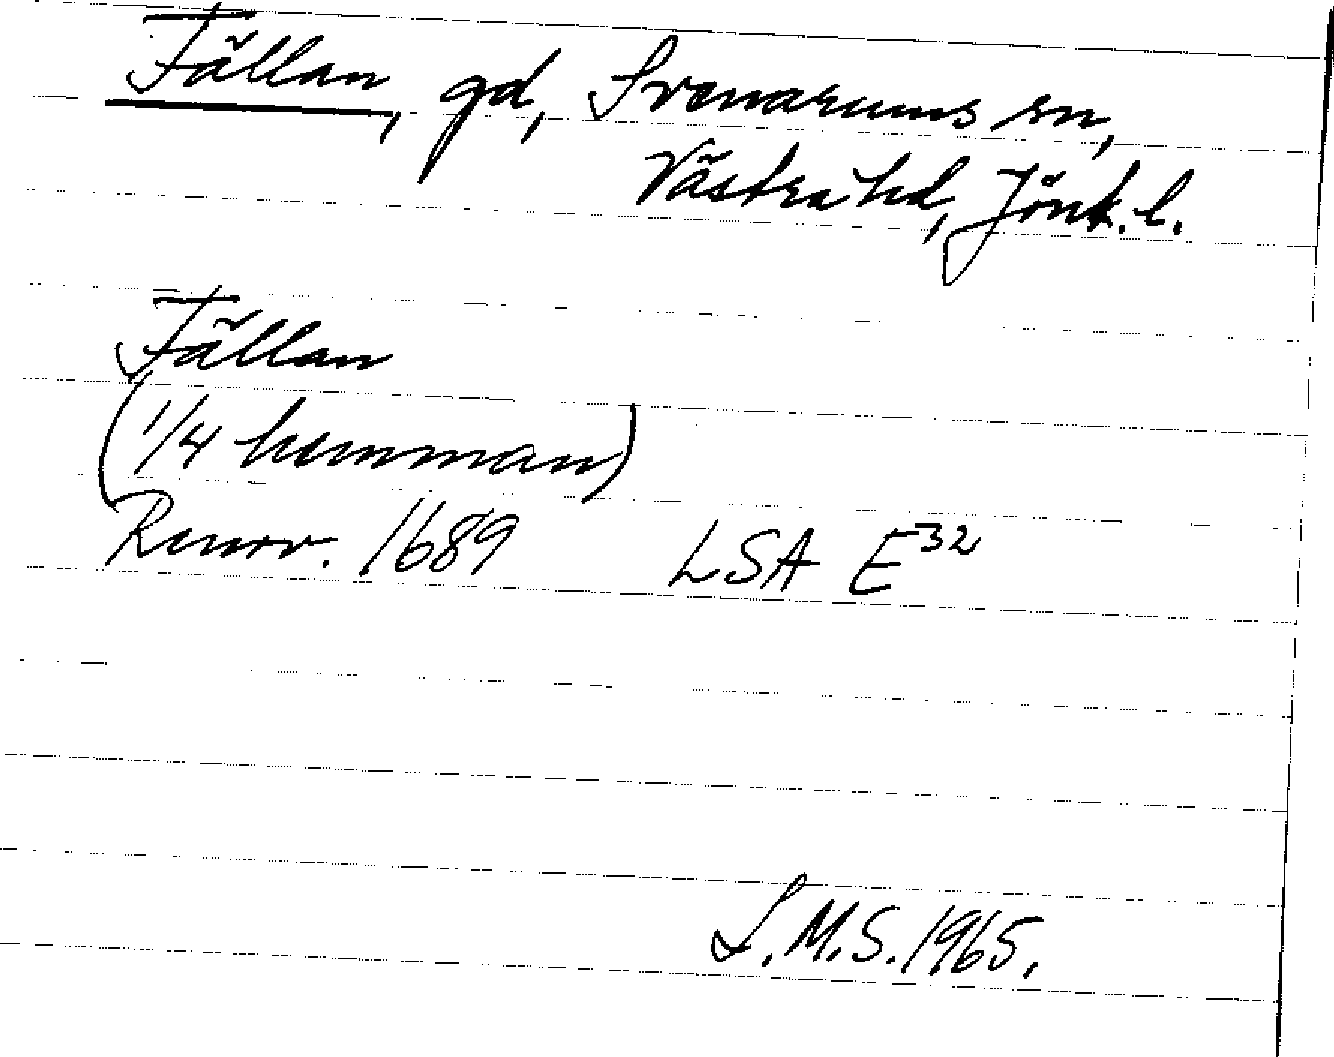 Fällan, gd, Svenarums sn,
Västra hd, Jönk. l.
Fällan
(1/4 hemman)
Renov. 1689 LSA E32
L.M.S. 1965.